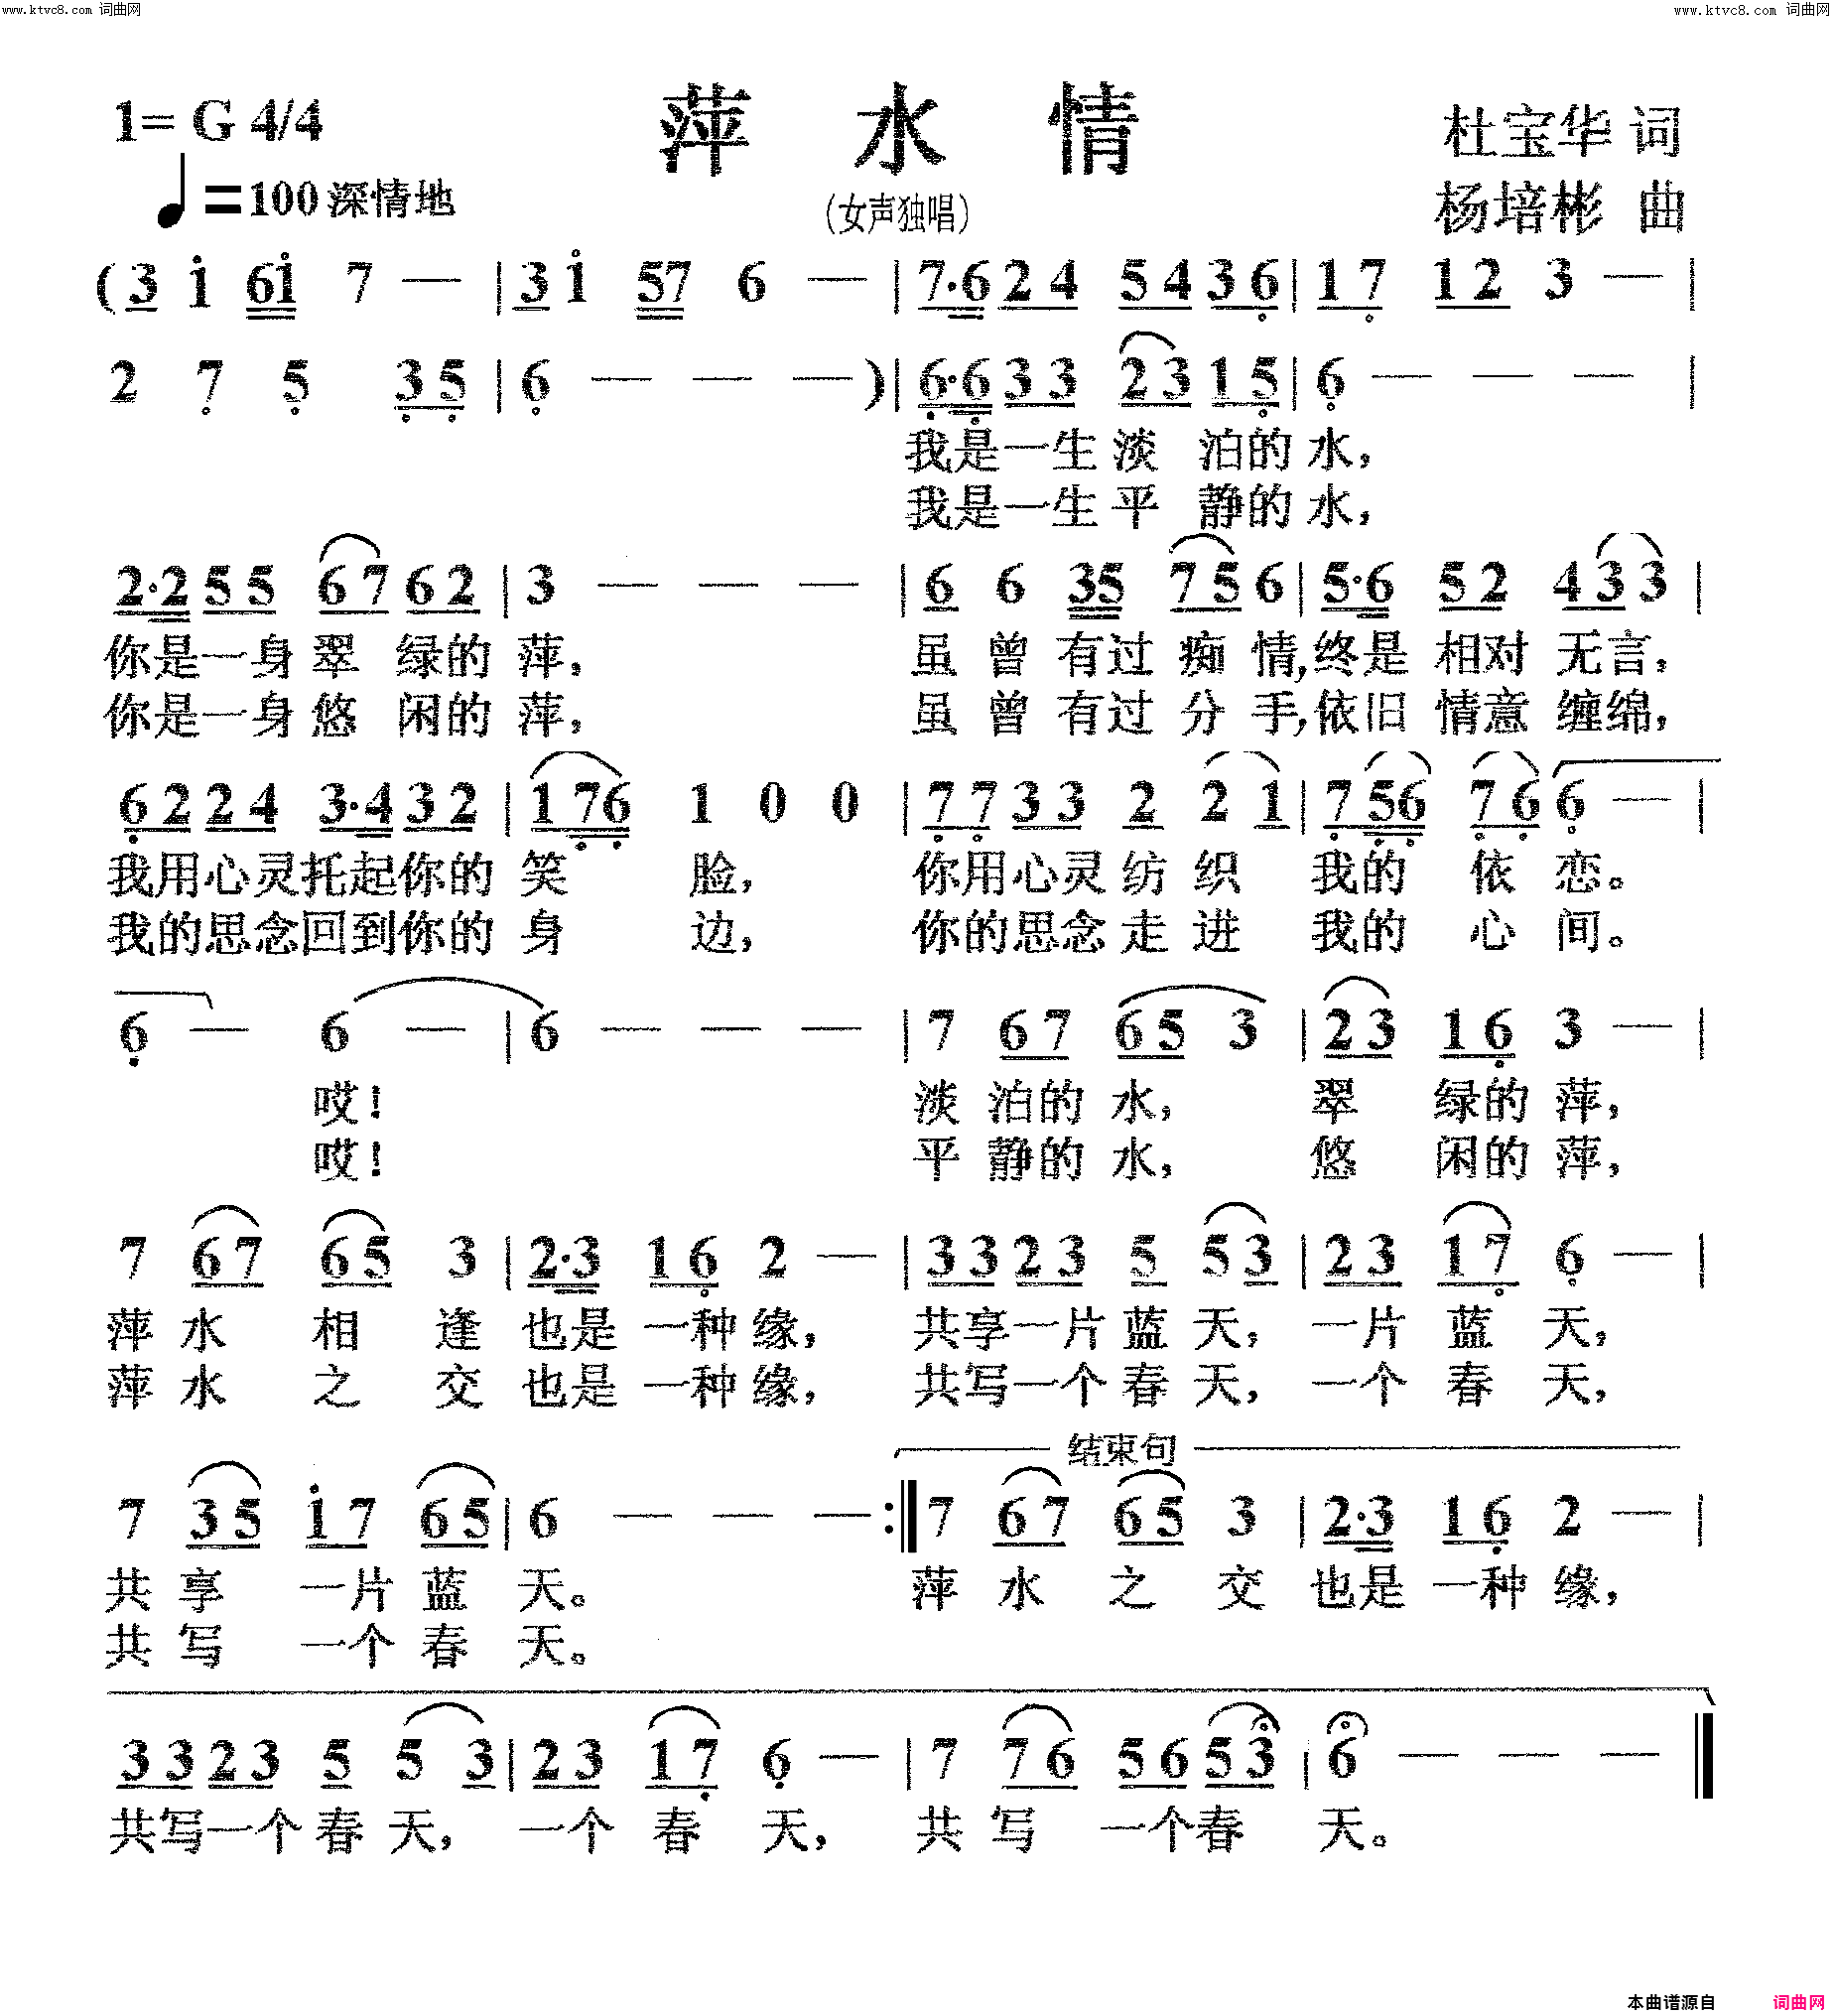 www.ktvc8.com 词曲网
www.ktvc8.com 词曲网
1= G 4/4
萍 水 情
杜宝华 词
♩=100 深情地
(女声独唱)
杨培彬 曲
(3 i 6i 7 — | 3 i 57 6 — | 7·6 2 4 5 4 3 6 | 1 7 1 2 3 — |
2 7 5 3 5 | 6 — — — ) | 6·6 3 3 2 3 1 5 | 6 — — — |
我是一生淡 泊的水,
我是一生平 静的水,
2·2 5 5 6 7 6 2 | 3 — — — | 6 6 35 7 5 6 | 5·6 5 2 4 3 3 |
你是一身翠 绿的 萍, 虽 曾 有过 痴 情,终是 相对 无言,
你是一身悠 闲的 萍, 虽 曾 有过 分 手,依旧 情意 缠绵,
6 2 2 4 3·4 3 2 | 1 7 6 1 0 0 | 7 7 3 3 2 2 1 | 7 5 6 7 6 6 — |
我用心灵托起你的 笑 脸, 你用心灵 纺 织 我的 依 恋。
我的思念回到你的 身 边, 你的思念 走 进 我的 心 间。
6 — 6 — | 6 — — — | 7 6 7 6 5 3 | 2 3 1 6 3 — |
哎! 淡 泊的 水, 翠 绿的 萍,
哎! 平 静的 水, 悠 闲的 萍,
7 6 7 6 5 3 | 2·3 1 6 2 — | 3 3 2 3 5 5 3 | 2 3 1 7 6 — |
萍 水 相 逢 也是 一种 缘, 共享一片 蓝 天, 一片 蓝 天,
萍 水 之 交 也是 一种 缘, 共写一个 春 天, 一个 春 天,
结束句
7 3 5 i 7 6 5 | 6 — — — :‖ 7 6 7 6 5 3 | 2·3 1 6 2 — |
共 享 一片 蓝 天。 萍 水 之 交 也是 一种 缘,
共 写 一个 春 天。
3 3 2 3 5 5 3 | 2 3 1 7 6 — | 7 7 6 5 6 5 3 | 6 — — — ‖
共写一个 春 天, 一个 春 天, 共 写 一个春 天。
本曲谱源自 词曲网